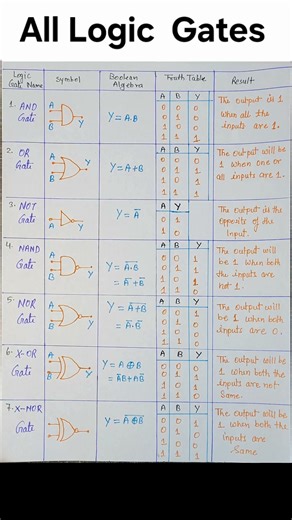 All Logic Gates
Logic Gate Name
Symbol
Boolean Algebra
Truth Table
Result
1. AND Gate
A
B
Y
Y = A.B
A B Y
0 0 0
0 1 0
1 0 0
1 1 1
The output is 1
when all the
inputs are 1.
2. OR Gate
A
B
Y
Y = A+B
A B Y
0 0 0
0 1 1
1 0 1
1 1 1
The output will be
1 when one or
all inputs are 1.
3. NOT Gate
A
Y
Y = A̅
A Y
0 1
1 0
The output is the
opposite of the
Input.
4. NAND Gate
A
B
Y
Y = A̅.̅B̅
A B Y
0 0 1
0 1 1
1 0 1
1 1 0
The output will
be 1 when both
the inputs are
not 1.
5. NOR Gate
A
B
Y
Y = A̅+̅B̅
= A̅.B̅
A B Y
0 0 1
0 1 0
1 0 0
1 1 0
The output will
be 1 when both
inputs are 0.
6. X-OR Gate
A
B
Y
Y = A ⊕ B
= A̅B + AB̅
A B Y
0 0 0
0 1 1
1 0 1
1 1 0
The output will
be 1 when both the
inputs are not
Same.
7. X-NOR Gate
Y = A̅ ̅⊕̅ ̅B̅
A B Y
0 0 1
0 1 0
1 0 0
1 1 1
The output will be
1 when both the
inputs are
Same